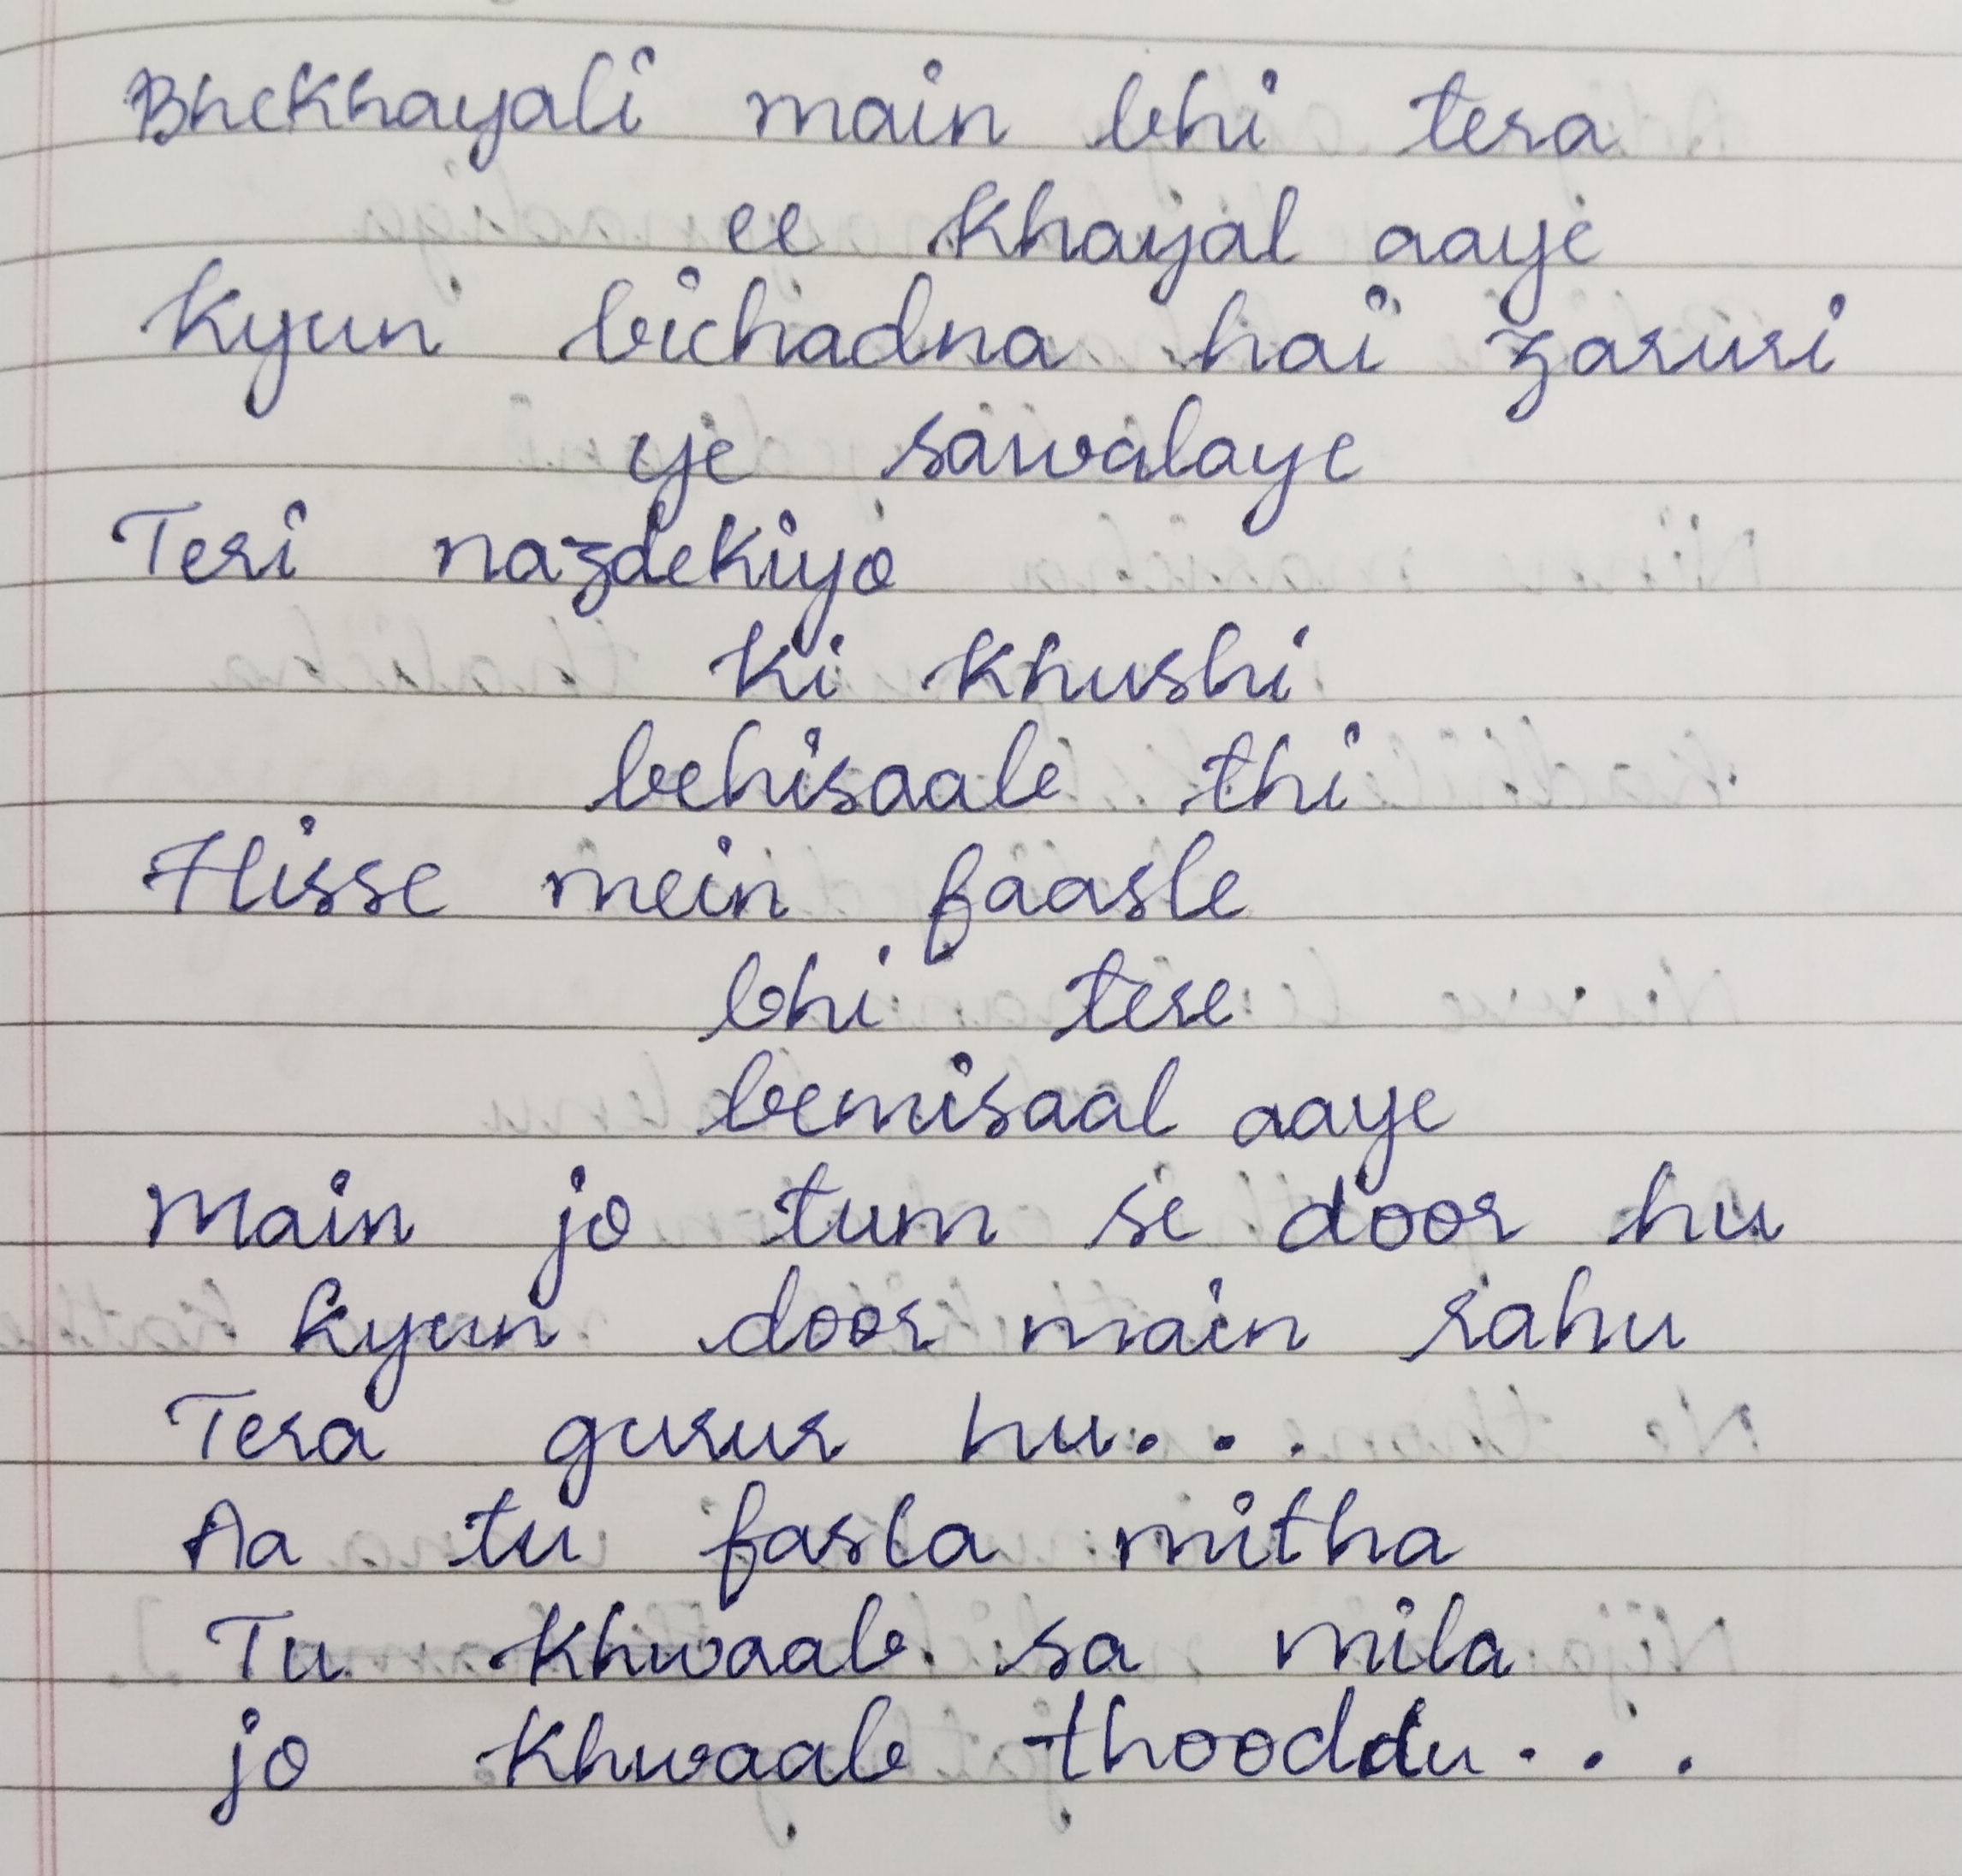 Bhekhayali main bhi tera
ee khayal aaye
Kyun bichadna hai zaruri
ye sawalaye
Teri nazdekiyo
ki khushi
behisaab thi
Hisse mein faasle
bhi tere
bemisaal aaye
Main jo tum se door hu
kyun door main rahu
Tera gurur hu...
Aa tu fasla mitha
Tu khwaab sa mila
jo khwaab thooddu...